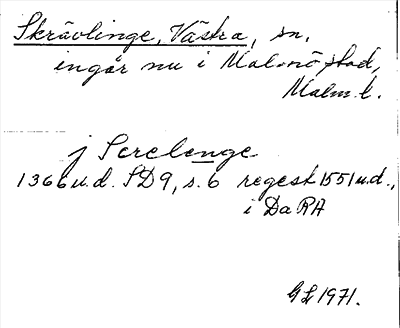 Skrävlinge, Västra, sn.
ingår nu i Malmö stad,
Malm.l.
j Screlenge
1366 u.d. SD 9, s. 6 regest 1551 u.d.,
i Da RA
GL 1971.